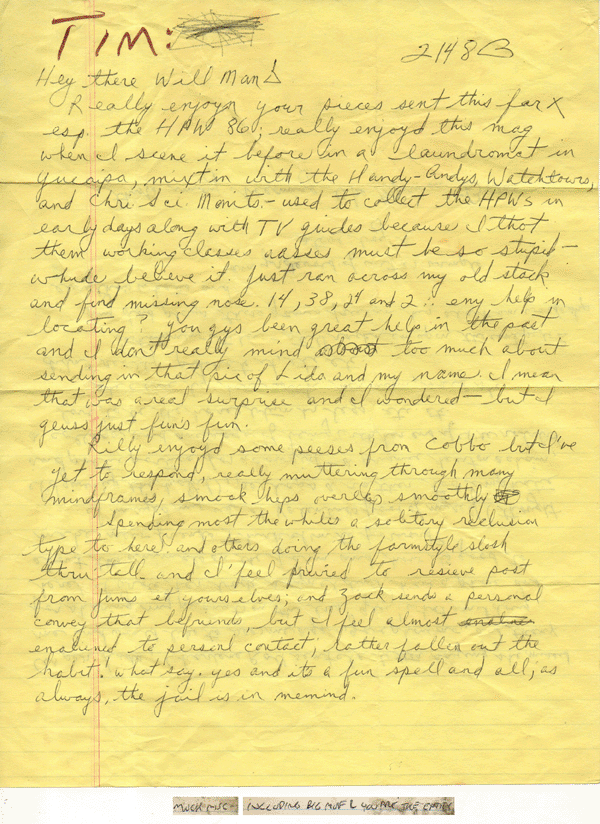 TIM:
2148
Hey there Will Man!
Really enjoyn your pieces sent this far x
esp. the HPW 86; really enjoyd this mag
when I scene it before in a laundromat in
Yucaipa, mixt in with the Handy-Andys, Watchtowrs,
and Chri Sci Monits.- used to collect the HPWs in
early days along with TV guides because I thot
them working classes asses must be so stupid -
whude beleeve it. Just ran across my old stack
and find missing nose. 14, 38, 24 and 2 :. eny help in
locating? You gys been great help in the past
and I don't really mind too much about
sending in that pic of Lida and my name. I mean
that was a real surprise and I wondered - but I
geuss just fun's fun.
Rilly enjoyd some peeses fron Cobbo but I've
yet to respond, really muttering through many
mindframes, smock heps overlap smoothly
Spending most the whiles a solitory reclusion
type to here and others doing the farmstyle slosh
thru tall and I feel prived to resieve post
from Jums et yourselves; and Zack sends a personal
convey that befriends, but I feel almost
enamured to persnl contact; ratter fallen out the
habit. What say. yes and its a fun spell and all; as
always, the jail is in memind.
MUCH MISC-
INCLUDING BIG MUF & YOU ARE THE